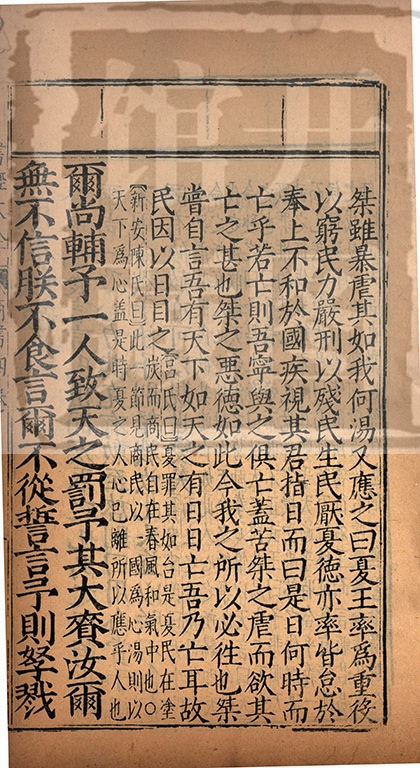 桀雖暴虐其如我何湯又應之曰夏王率爲重役
以窮民力嚴刑以殘民生民厭夏德亦率皆怠於
奉上不和於國疾視其君指日而曰是日何時而
亡乎若亡則吾寧與之俱亡蓋苦桀之虐而欲其
亡之甚也桀之惡德如此今我之所以必徃也桀
嘗自言吾有天下如天之有日日亡吾乃亡耳故
民因以日目之
呂氏曰夏罪其如台是夏民在塗
炭而商民自在春風和氣中也○
新安陳氏曰此一節見商民以一國爲心湯則以
天下爲心盖是時夏之人心已離所以應乎人也
爾尚輔予一人致天之罰予其大賚汝爾
無不信朕不食言爾不從誓言予則孥戮